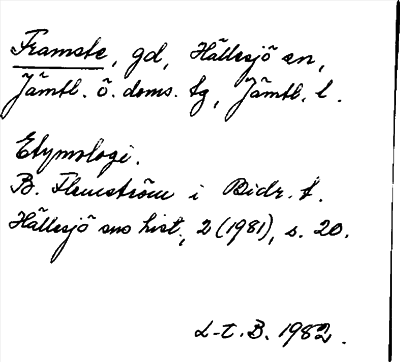 Framste, gd, Hällesjö sn,
Jämtl. ö. doms. tg, Jämtl. l.
Etymologi.
B. Flemström i Bidr. t.
Hällesjö sns hist., 2 (1981), s. 20.
L-t. B. 1982.